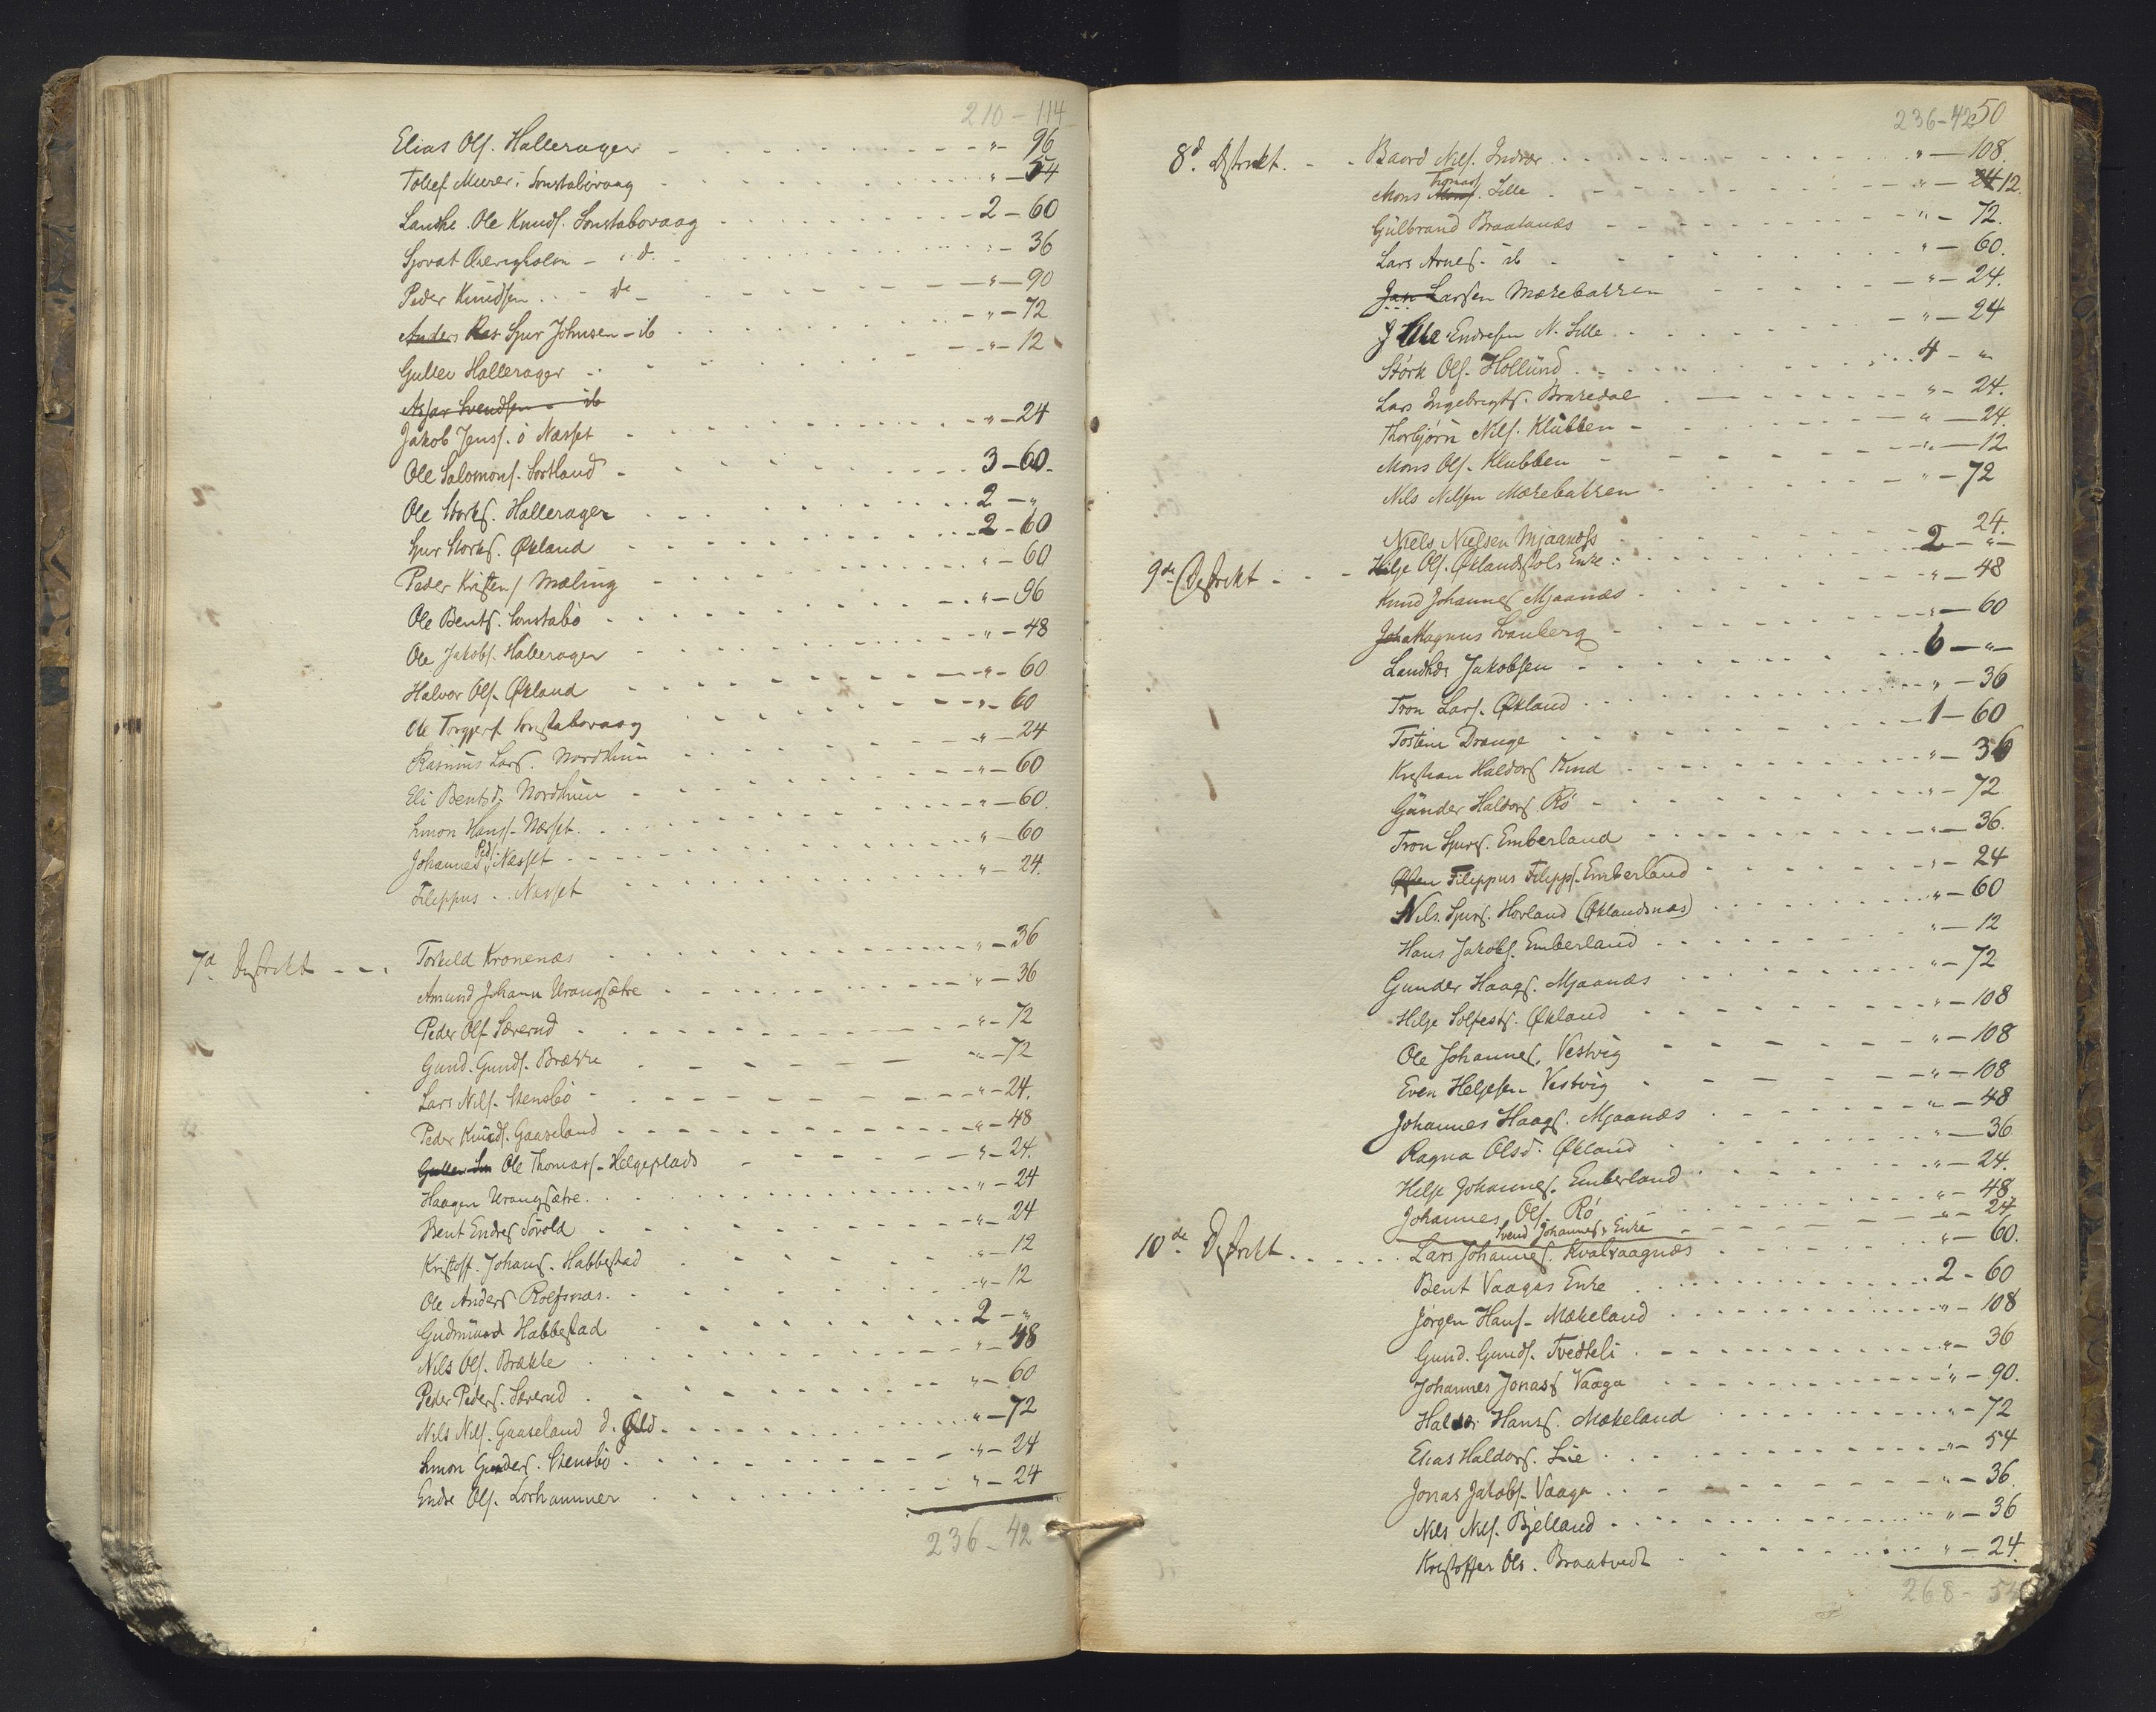 210 - 114
Elias Ols. Hallerager " - 96
Tollef Murer i Sonstabövaag " - 54
Landhe. Ole Knuds. Sonstabovaag 2 - 60
Sjovat - i. d. " - 36
Peder Knudsen - do " - 90
Anders Ras Sjur Johnsen - ib " - 72
Gullei Hallerager " - 12
Assar Svendsen - ib
Jakob Jens. ö Næsset " - 24
Ole Salomons. Sortland 3 - 60.
Ole Storks. Hallerager 2 - "
Sjur Storks. Økland 2 - 60
Peder Kristens Mæling " - 60
Ole Bents. Sonstabö " - 96
Ole Jakobs. Hallerager " - 48
Halvor Ols. Økland " - 60
Ole Torgjers. Sonstabovaag " - 60
Rasmus Lars. Nordhuu " - 24
Eli Bentsd. Nordhuu " - 60
Simon Hans. Næsset " - 60.
Johannes Peds. Næsset " - 60
Filippus . . Næsset " - 24.
7d Distrikt - - . Torkeld Kronenæs " - 36
Amund Johann Urangsætre " - 36
Peder Ols. Særevd " - 72
Gund. Gunds. Brække " - 72
Lars Nils. Stensbö " - 24.
Peder Knuds. Gaaseland " - 48
Ole Thomass. Helgeplads " - 24.
Haagen Urangsætre " - 24
Bent Endres Sörold " - 24
Kristoff. Johans. Habbestad " - 12
Ole Anders Rolfsnæs. " - 12
Gudmund Habbestad 2 - "
Nils Ols. Brække " - 48
Peder Peders. Særevd " - 60
Nils Nils. Gaaseland d. Æld. " - 72
Simon Gunders. Stensbö " - 24
Endre Ols. Lorhammer " - 24
236 - 42
236 - 42 50
8d Distrikt. - . Baord Nils. Indvær " - 108.
Mons Mons. Thomas. Lille " - 24 12.
Gulbrand Braatanæs " - 72.
Lars Arnes. ib " - 60.
Jan Larsen Mækebakken " - 24.
Endresen N. Lille " - 24
Störk Ols. Hollund 4 - "
Lars Ingebrigts. Brakedal " - 24.
Thorbjörn Nils. Klubben " - 24.
Mons Ols. Klubben " - 12
Nils Nilsen Mækebakken " - 72
Niels Nielsen Mjaanæs 24.
9de Distrikt - - Hilje Ols. Øklandstöls Enke: 2 - "
Knud Johannes Mjaanæs " - 48
Joha Magnus Svanberg " - 60
Landhdr Jakobsen 6 - "
Tron Lars. Økland " - 36
Tosten Drange 1 - 60
Kristian Haldors Kind " - 36
Gunder Haldors Rö " - 72
Tron Sjurs. Emberland " - 36.
Østen Filippus Filipps. Emberland " - 24
Nils. Sjurs. Hovland (Øklandsnæs) " - 60
Hans Jakobs. Emberland " - 12
Gunder Haags. Mjaanæs " - 72
Hilje Solfests. Økland " - 108
Ole Johannes. Vestvig " - 108
Even Heljesen Vestvig " - 108
Johannes Haags. Mjaanæs " - 48
Ragna Olsd. Økland " - 36
Helje Johannes. Emberland " - 24.
Johannes Ols. Rö " - 48.
Svend Johannes. Enke " - 24
10de Distrikt. Lars Johannes. Kvalvaagnæs " - 60.
Bent Vaagas Enke 2 - 60
Jörgen Hans. Mækeland " - 108
Gund. Gunds. Tvedteli " - 36
Johannes Jonass Vaaga " - 90.
Haldor Hans. Mækeland " - 72
Elias Haldors. Lie " - 54
Jonas Jakobs. Vaaga " - 36.
Nils Nils. Bjelland " - 36
Kristoffer Ols. Braatvedt " - 24.
268 - 54